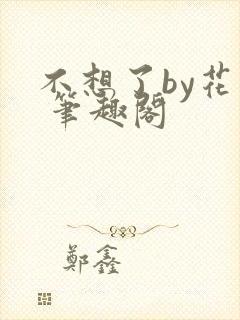 不想了by花
筆趣閣
鄭鑫